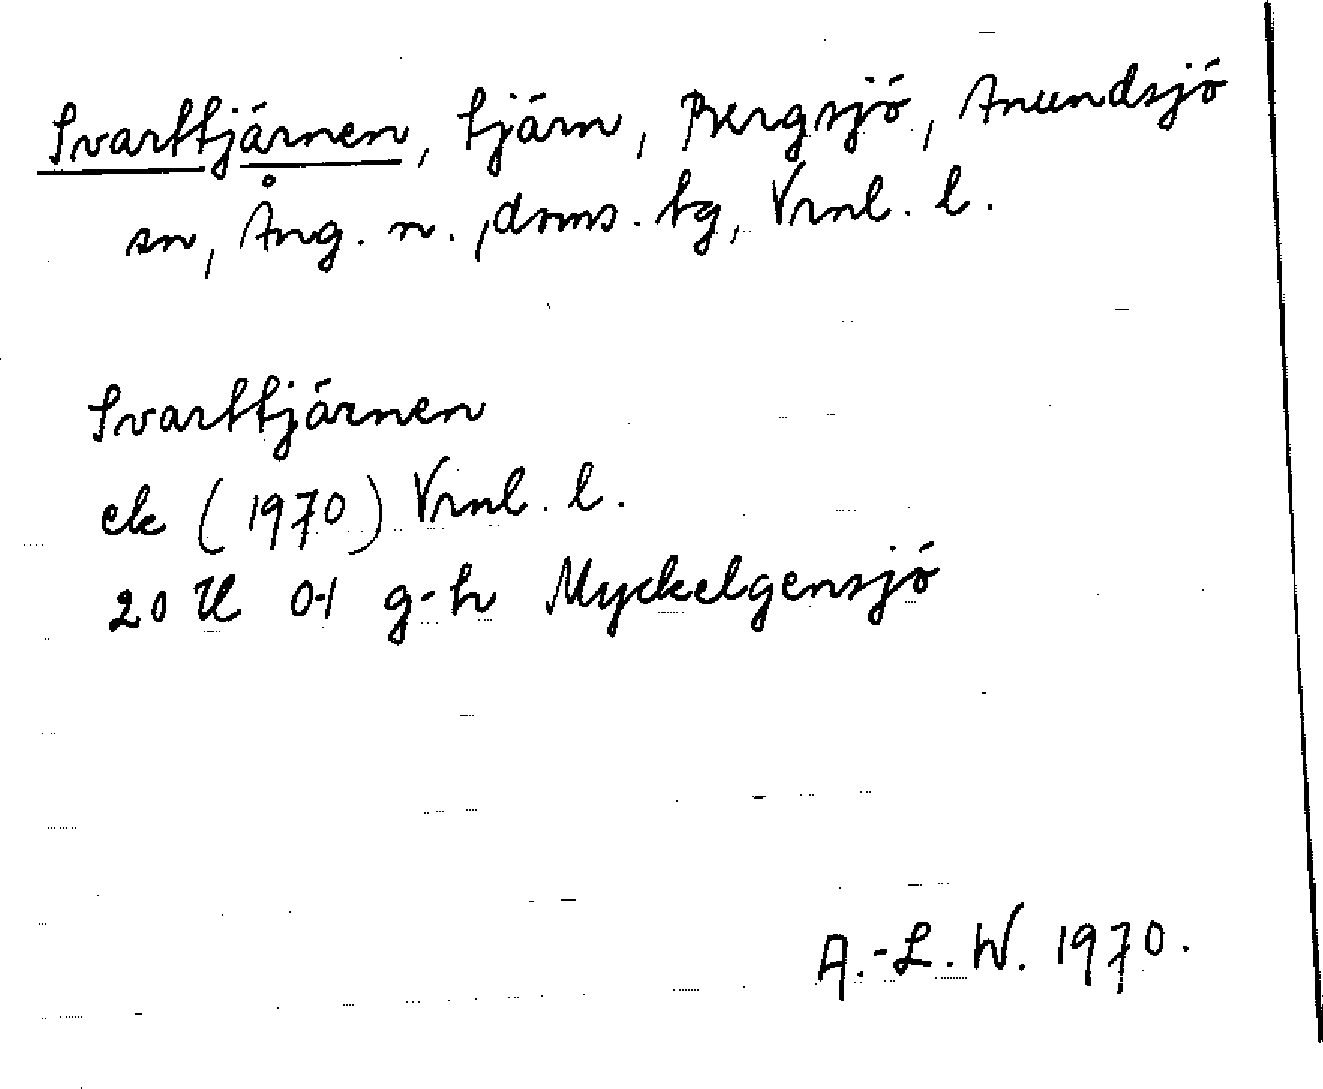 Svarttjärnen, tjärn, Bergsjö, Anundsjö
sn, Ång. n., doms. tg, Vrnl. l.
Svarttjärnen
ek (1970) Vrnl. l.
20 H 0-1 g-h Myckelgensjö
A.-L. W. 1970.